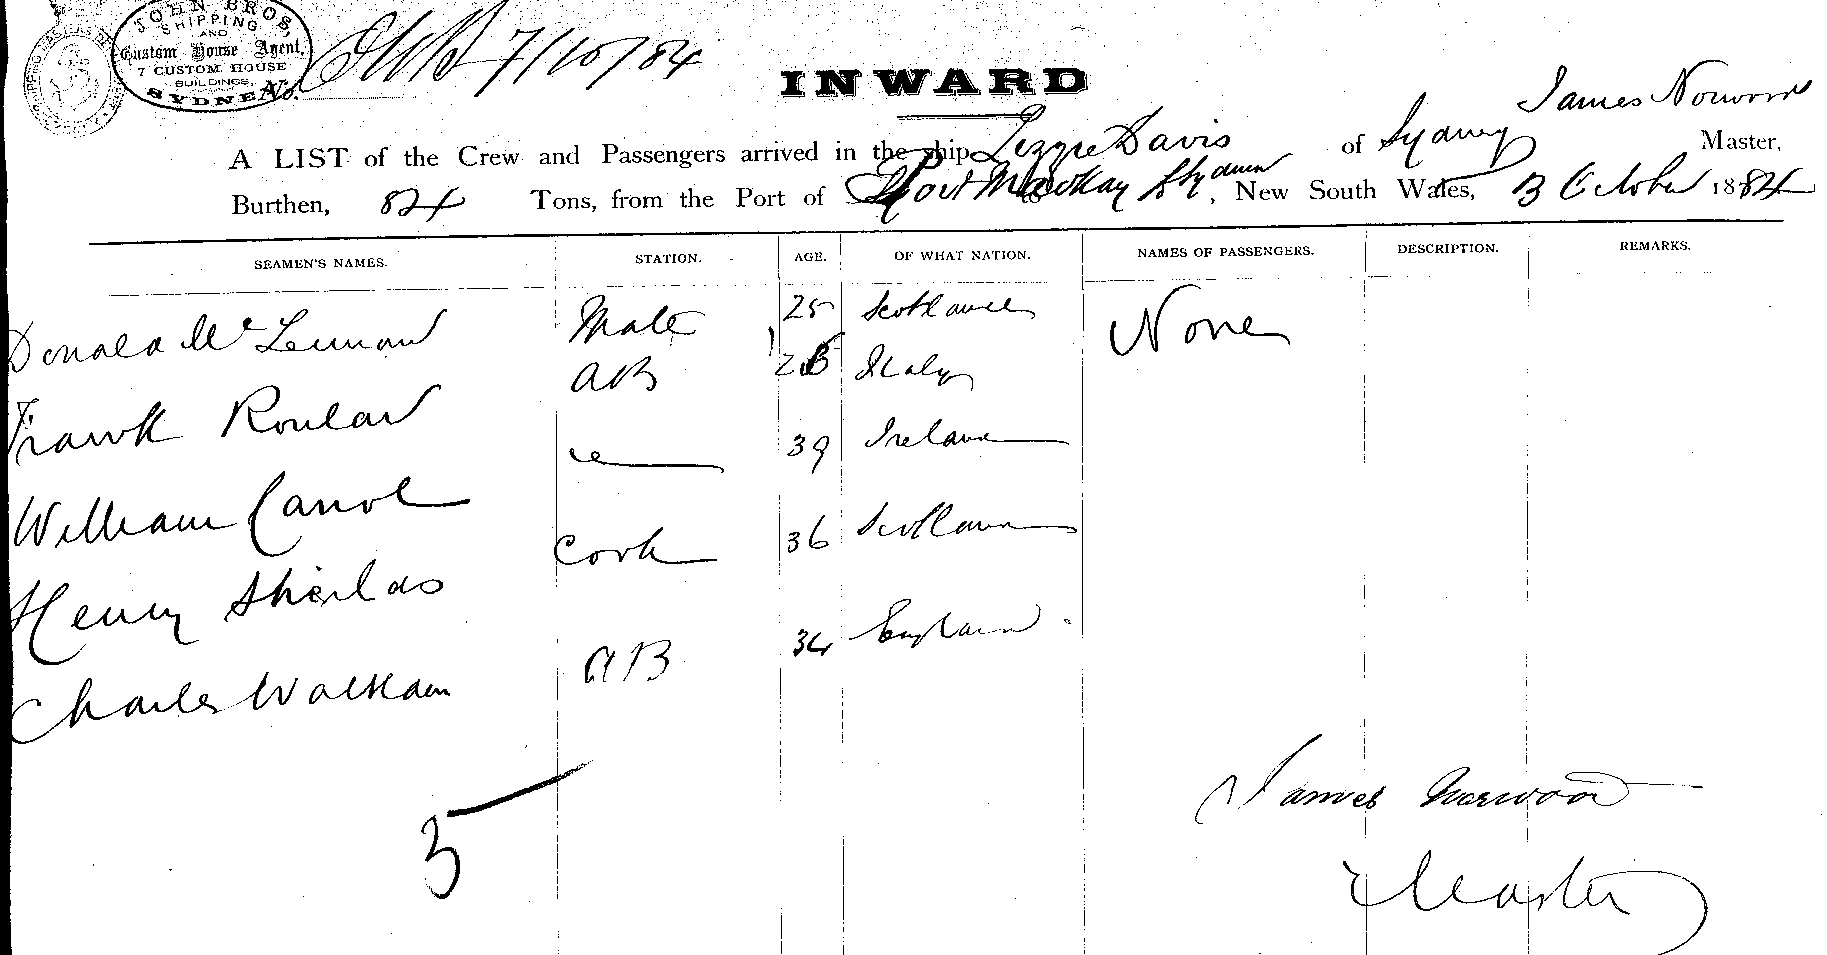 JOHN BROS,
SHIPPING
AND
Custom House Agent.
7 CUSTOM HOUSE
BUILDINGS,
SYDNEY
No.
7/10/84
INWARD
James Norwood
A LIST of the Crew and Passengers arrived in the ship Lizzie Davis of Sydney Master,
Burthen, 84 Tons, from the Port of Port Mackay to Sydney, New South Wales, 3 October 1884
SEAMEN'S NAMES. STATION. AGE. OF WHAT NATION. NAMES OF PASSENGERS. DESCRIPTION. REMARKS.
Donald Mc Lennan Mate 25 Scotland None
Frank AB Italy
William Carrol 39 Ireland
Henry Shields Cook 36 Scotland
Charles AB 34 England
5
James Norwood
Master